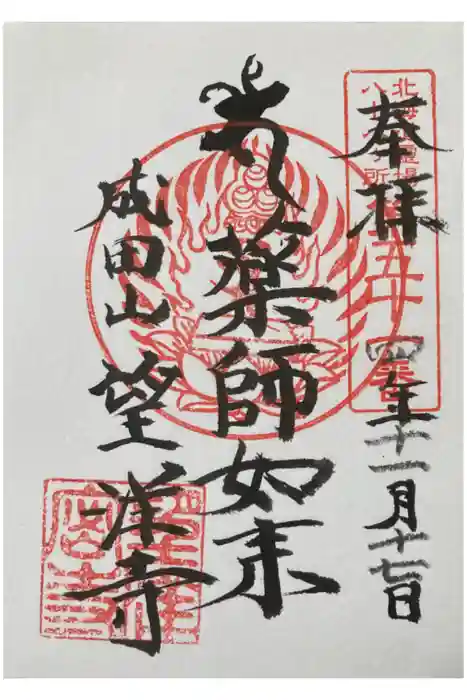 奉拝
年十一月十七日
北海道霊場
八十八ヶ所
薬師如来
成田山 望洋寺